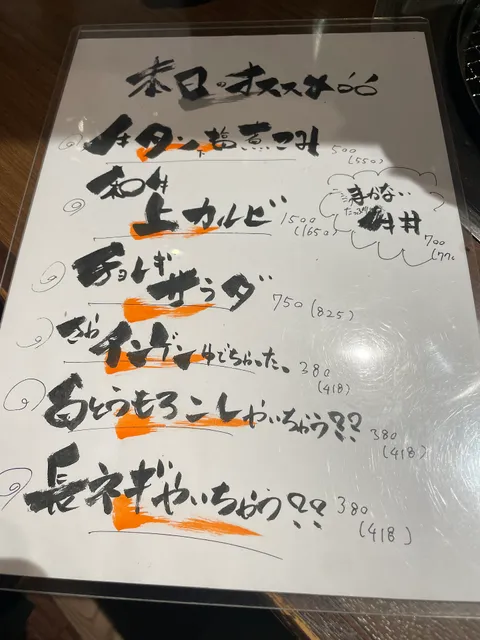 本日のオススメ
牛タン下塩煮こみ 500
(550)
和牛
上カルビ 1500
(1650)
牛丼
700
(770
チョレギ
サラダ 750 (825)
インゲンゆでちゃった。 380
(418)
白とうもろこしやいちゃう?? 380
(418)
長ネギやいちゃう?? 380
(418)